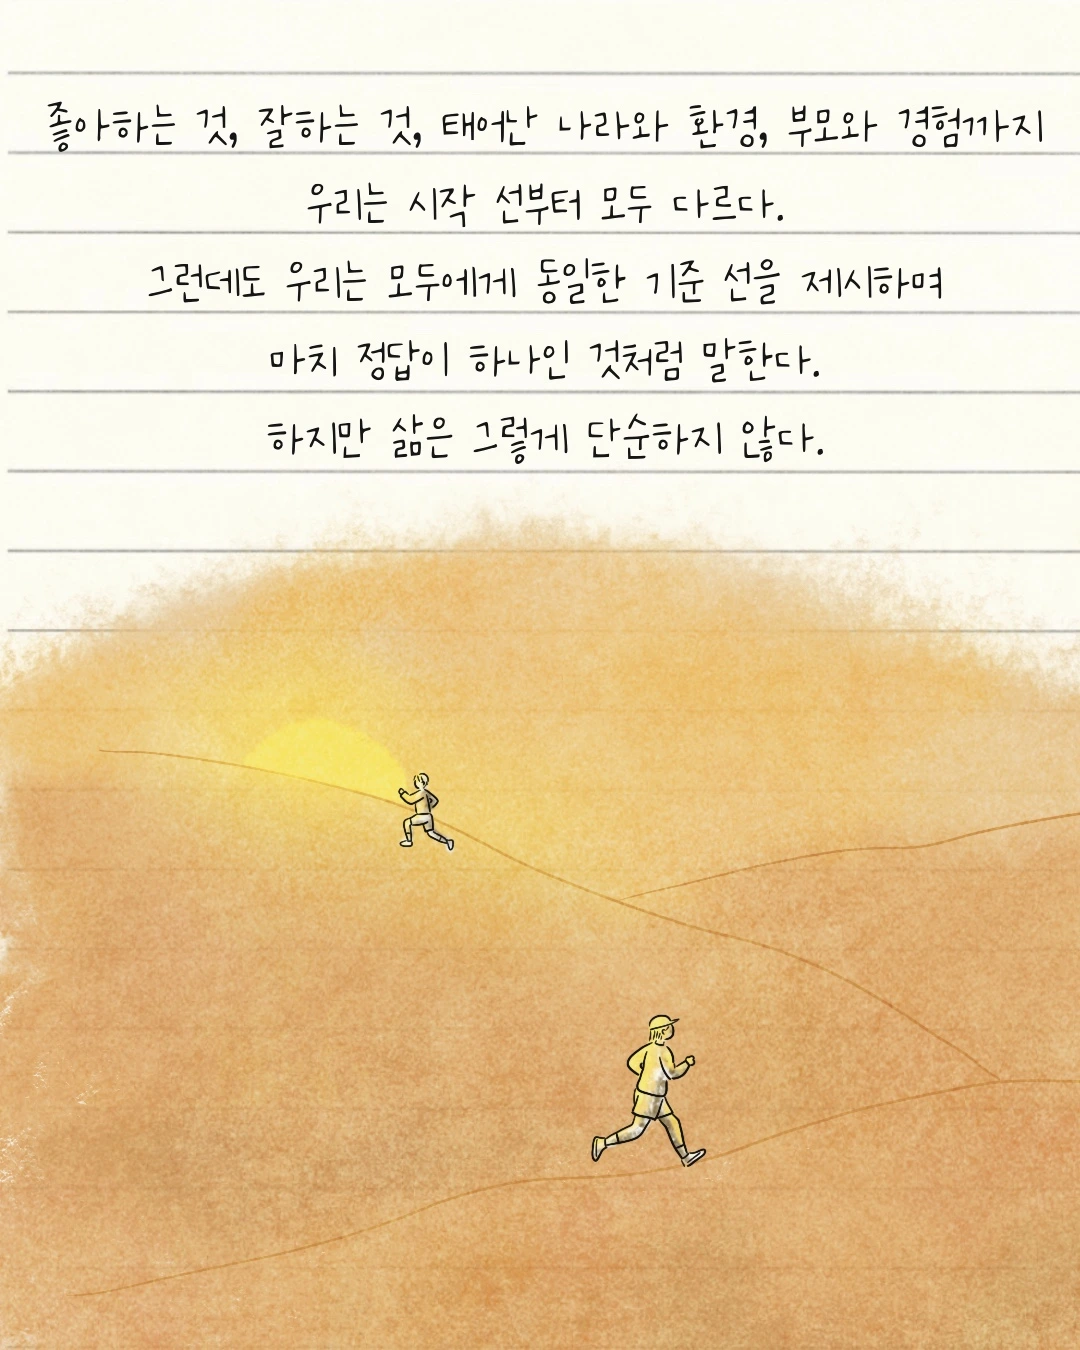 좋아하는 것, 잘하는 것, 태어난 나라와 환경, 부모와 경험까지
우리는 시작 선부터 모두 다르다.
그런데도 우리는 모두에게 동일한 기준 선을 제시하며
마치 정답이 하나인 것처럼 말한다.
하지만 삶은 그렇게 단순하지 않다.